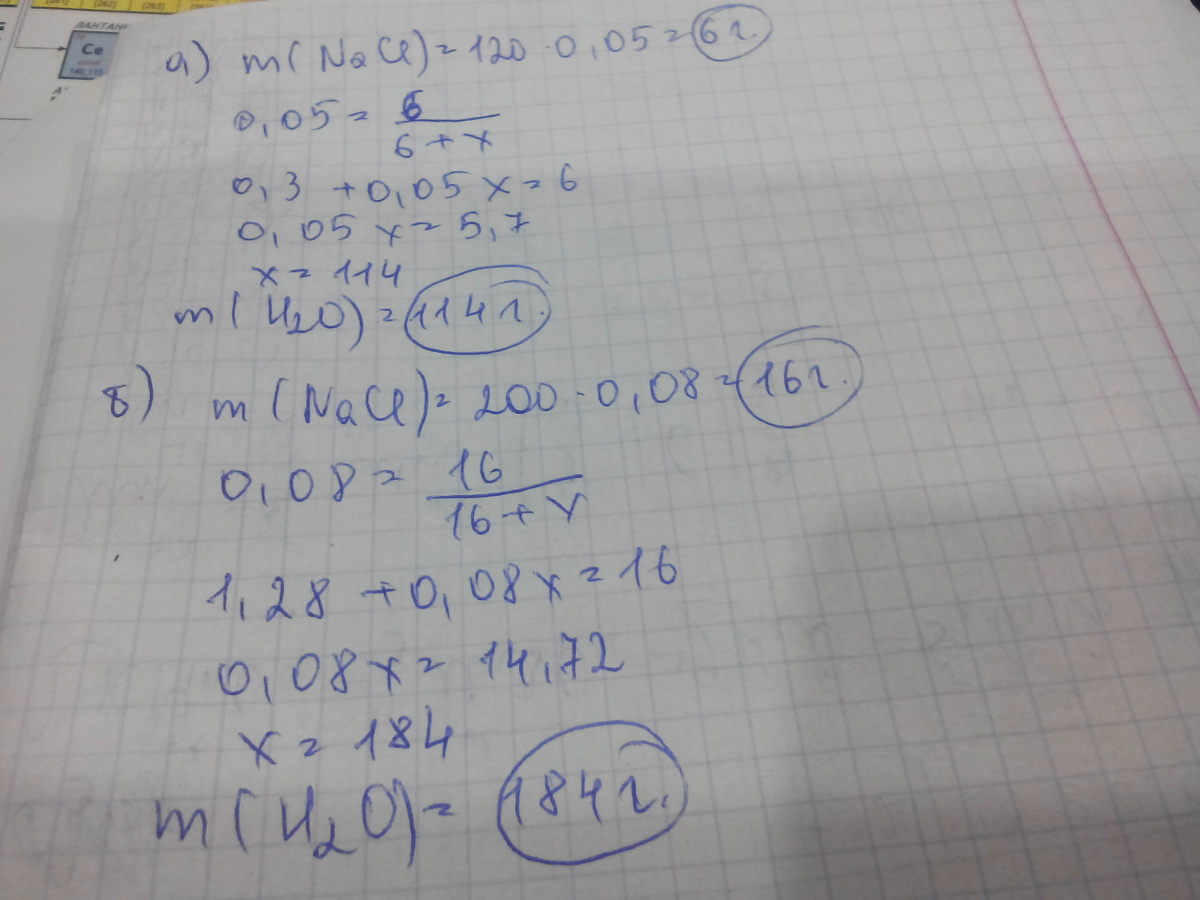 (261) (262) (263) (262)
ЛАНТАН
Ce
140,115
а) m(NaCl)=120·0,05=6г.
0,05=6/(6+x)
0,3+0,05x=6
0,05x=5,7
x=114
m(H₂O)=114г.
б) m(NaCl)=200·0,08=16г.
0,08=16/(16+x)
1,28+0,08x=16
0,08x=14,72
x=184
m(H₂O)=184г.